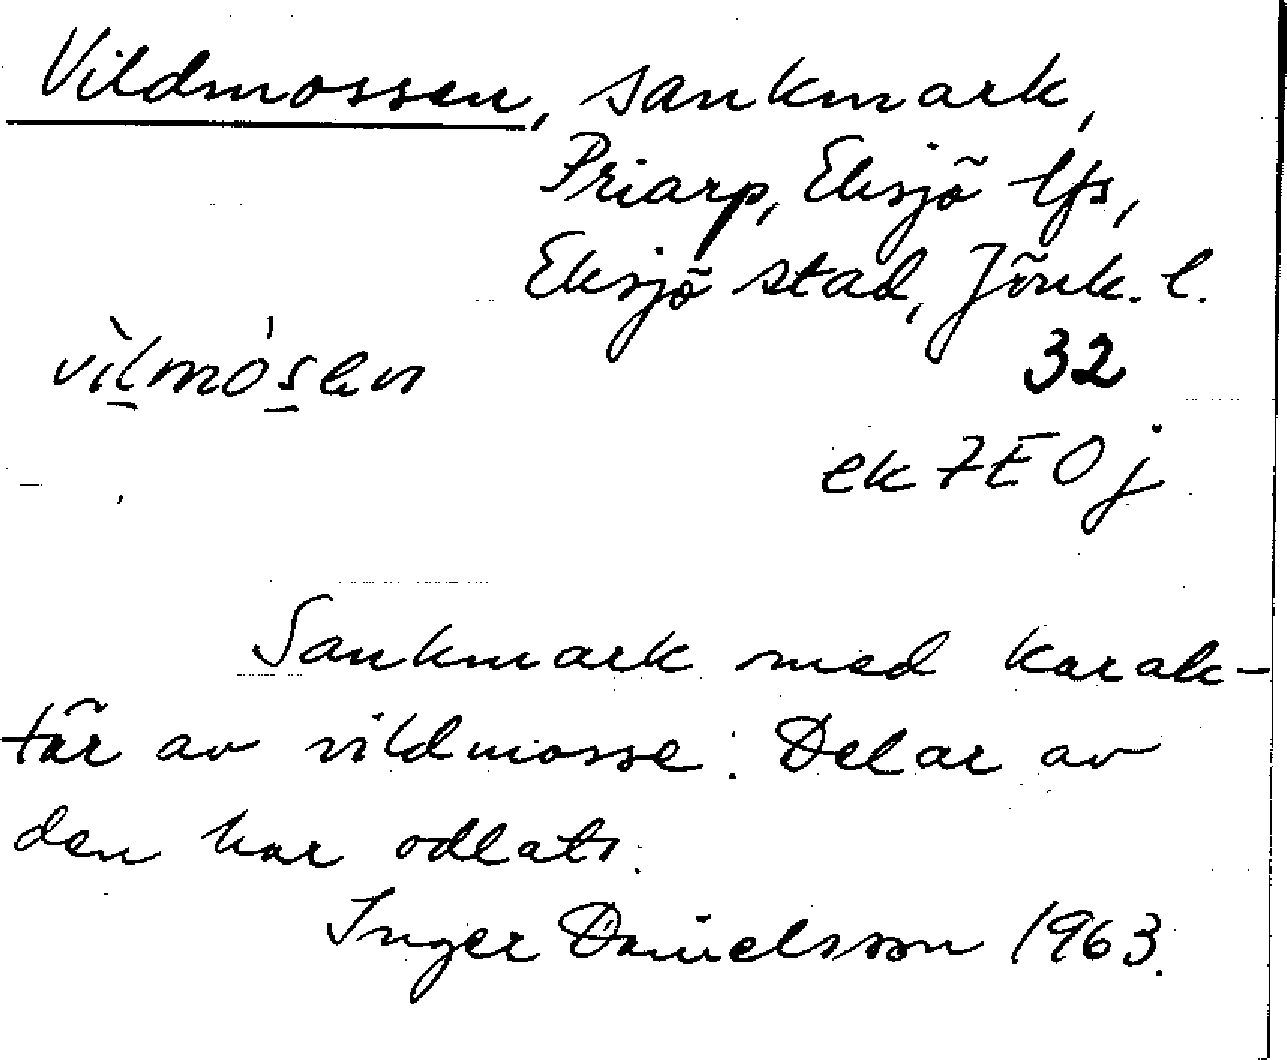 Vildmossen, sankmark,
Priarp, Eksjö lfs,
Eksjö stad, Jönk. l.
32
vìl̲mós̲en
ek 7E0j
Sankmark med karak-
tär av vildmosse. Delar av
den har odlats.
Inger Danielsson 1963.